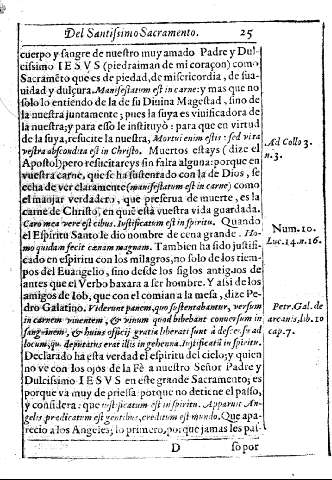 Del Santissimo Sacramento. 25
cuerpo y sangre de nuestro muy amado Padre y Dul-
cissimo IESVS (piedraiman de mi coraçon) como
Sacramẽto que es de piedad, de misericordia, de sua-
uidad y dulçura. Manifestatum est in carne: y mas que no
solo lo entiendo de la de su Diuina Magestad, sino de
la nuestra juntamente; pues la suya es viuificadora de
la nuestra; y para esso le instituyò: para que en virtud
de la suya, resucite la nuestra, Mortui enim estis: sed vita
vestra abscondita est in Christo. Muertos estays (dize el
Apostol) pero resucitareys sin falta alguna: porque en
vuestra carne, que se ha sustentado con la de Dios, se
echa de ver claramente (manifestatum est in carne) como
el manjar verdadero, que preserua de muerte, es la
carne de Christo, en quiẽ està vuestra vida guardada.
Caro mea vere est cibus. Iustificatum est in spiritu. Quando
el Espiritu Santo le dio nombre de cena grande. Ho-
mo quidam fecit cœnam magnam. Tambien ha sido justifi-
cado en espiritu con los milagros, no solo de los tiem-
pos del Euangelio, sino desde los siglos antigos de
antes que el Verbo baxara a ser hombre. Y assi de los
amigos de Iob, que con el comian a la mesa, dize Pe-
dro Galatino. Viderunt panem, quo sustentabantur, versum
in carnem viuentem, & vinum quod bibebant conuersum in
sanguinem, & huius officij gratia liberati sunt à descẽsu ad
locum, qui deputatus erat illis in gehenna. Iustificatũ in spiritu.
Declarado ha esta verdad el espiritu del cielo; y quien
no ve con los ojos de la Fè a nuestro Señor Padre y
Dulcissimo IESVS en este grande Sacramento; es
porque va muy de priessa: porque no detiene el passo,
y considera: que iustificatum est in spiritu. Apparuit An-
gelis predicatum est gentibus, creditum est mundo. Que apa-
recio a los Angeles; lo primero, porque jamas les pas-
D so por
Ad Collo 3.
n. 3.
Num. 10.
Luc. 14. n. 16.
Petr. Gal. de
arcanis, lib. 10
cap. 7.